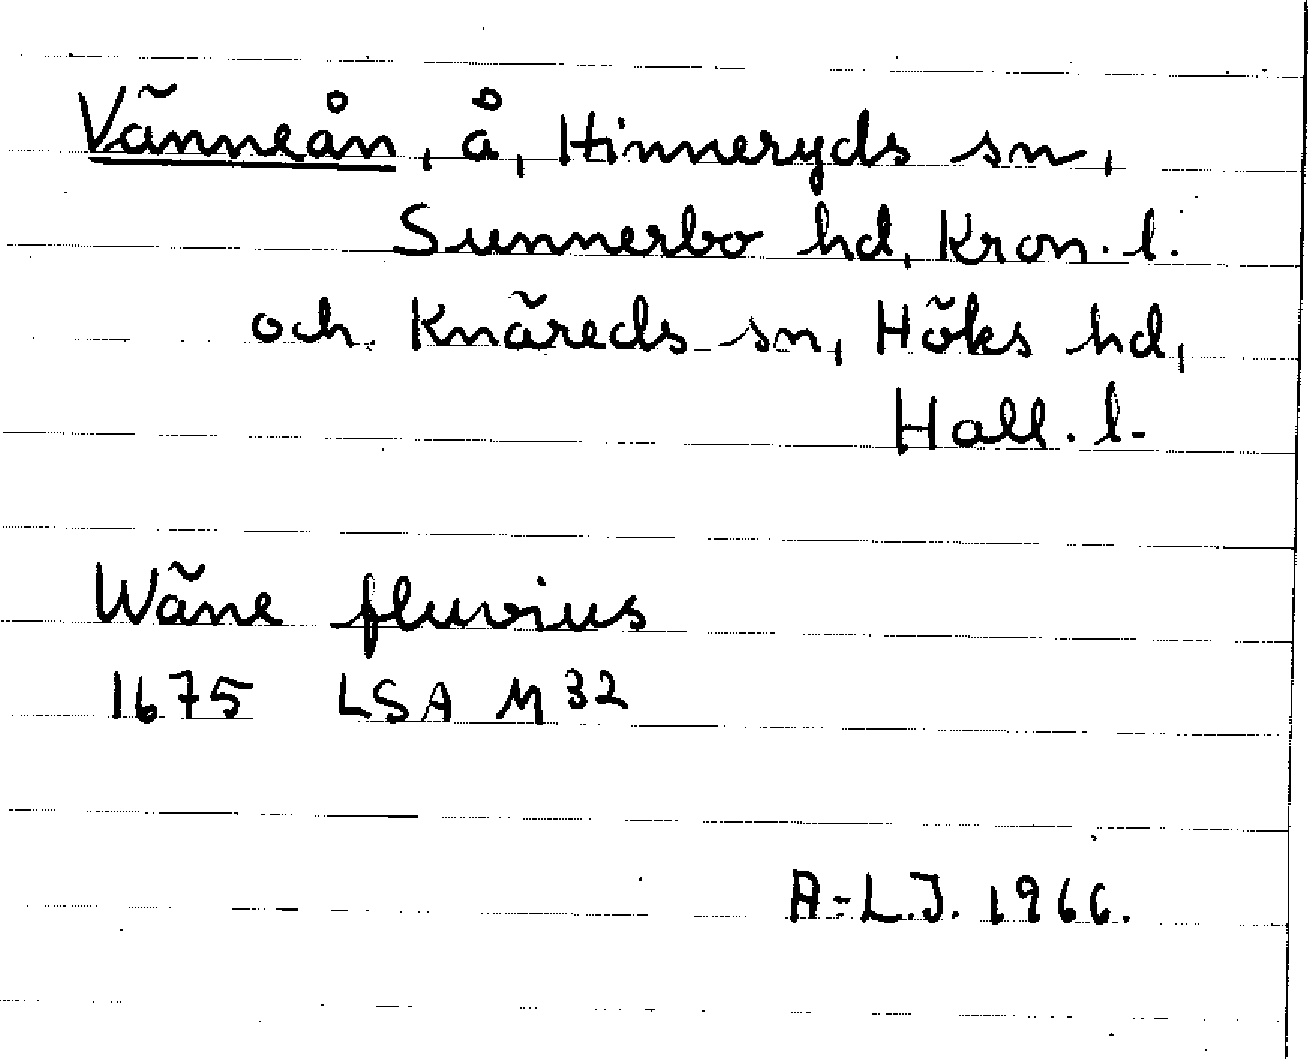 Vänneån, å, Hinneryds sn,
Sunnerbo hd, Kron. l.
och Knäreds sn, Höks hd,
Hall. l.
Wäne fluvius
1675 LSA M 32
A-L.J. 1966.